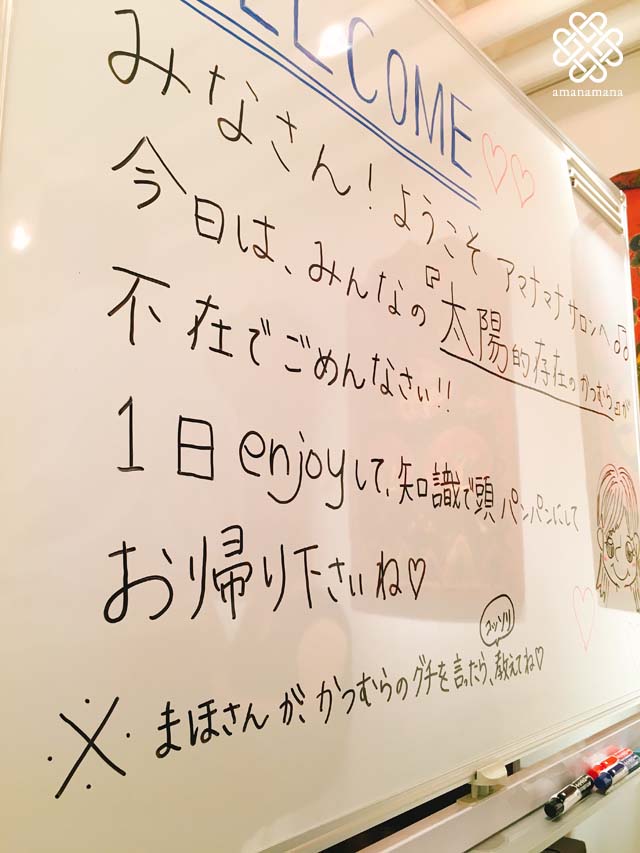 WELCOME
みなさん!ようこそ アマナマナサロンへ♫
今日は、みんなの『太陽的存在のかつむら』が
不在でごめんなさい!!
1日enjoyして、知識で頭パンパンにして
お帰り下さいね♡
コッソリ
※ まほさんが、かつむらのグチを言ったら、教えてね♡
amanamana